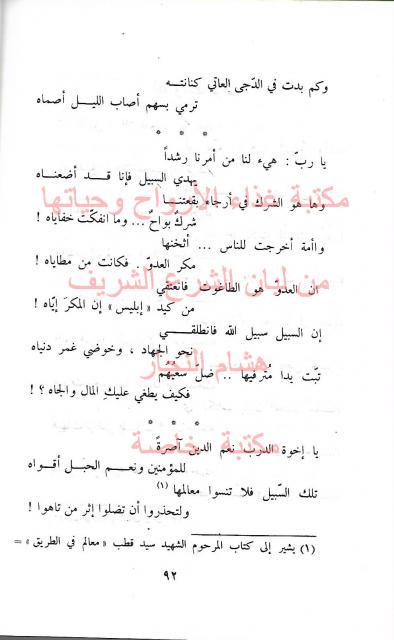 وكم بدت في الدّجى العاتي كنانتـــه
ترمي بسهم أصاب الليـــل أصماه
* * *
يا ربّ : هيء لنا من أمرنا رشداً
يهدي السبيل فإنا قـــد أضعنـــاه
مكتبة غذاء الأرواح وحياتها
وها هو الشرك في أرجاء بقعتنـــا
شركٌ بواحٌ ... وما انفكّت خفاياه !
واأمة أخرجت للناس ... أثخنها
مكر العدوّ .. فكانت من مطاياه !
من لبان الشرع الشريف
ان العدو هو الطاغوت فانعتقي
من كيد « إبليس » إن المكرَ إيّاه !
إن السبيل سبيل الله فانطلقـــي
نحو الجهاد ، وخوضي غمر دنياه
هشام النجار
تبّت يدا مُترفيها .. ضلّ سعْيُهُم
فكيف يطغي عليكِ المال والجاه ؟ !
* * *
مكتبة خاصة
يا إخوة الدرب نعم الدين آصرةً
للمؤمنين ونعـــم الحبـل أقواه
تلك السّبيل فلا تنسوا معالمها (١)
ولتحذروا أن تضلوا إثر من تاهوا !
(١) يشير إلى كتاب المرحوم الشهيد سيد قطب « معالم في الطريق » =
٩٢